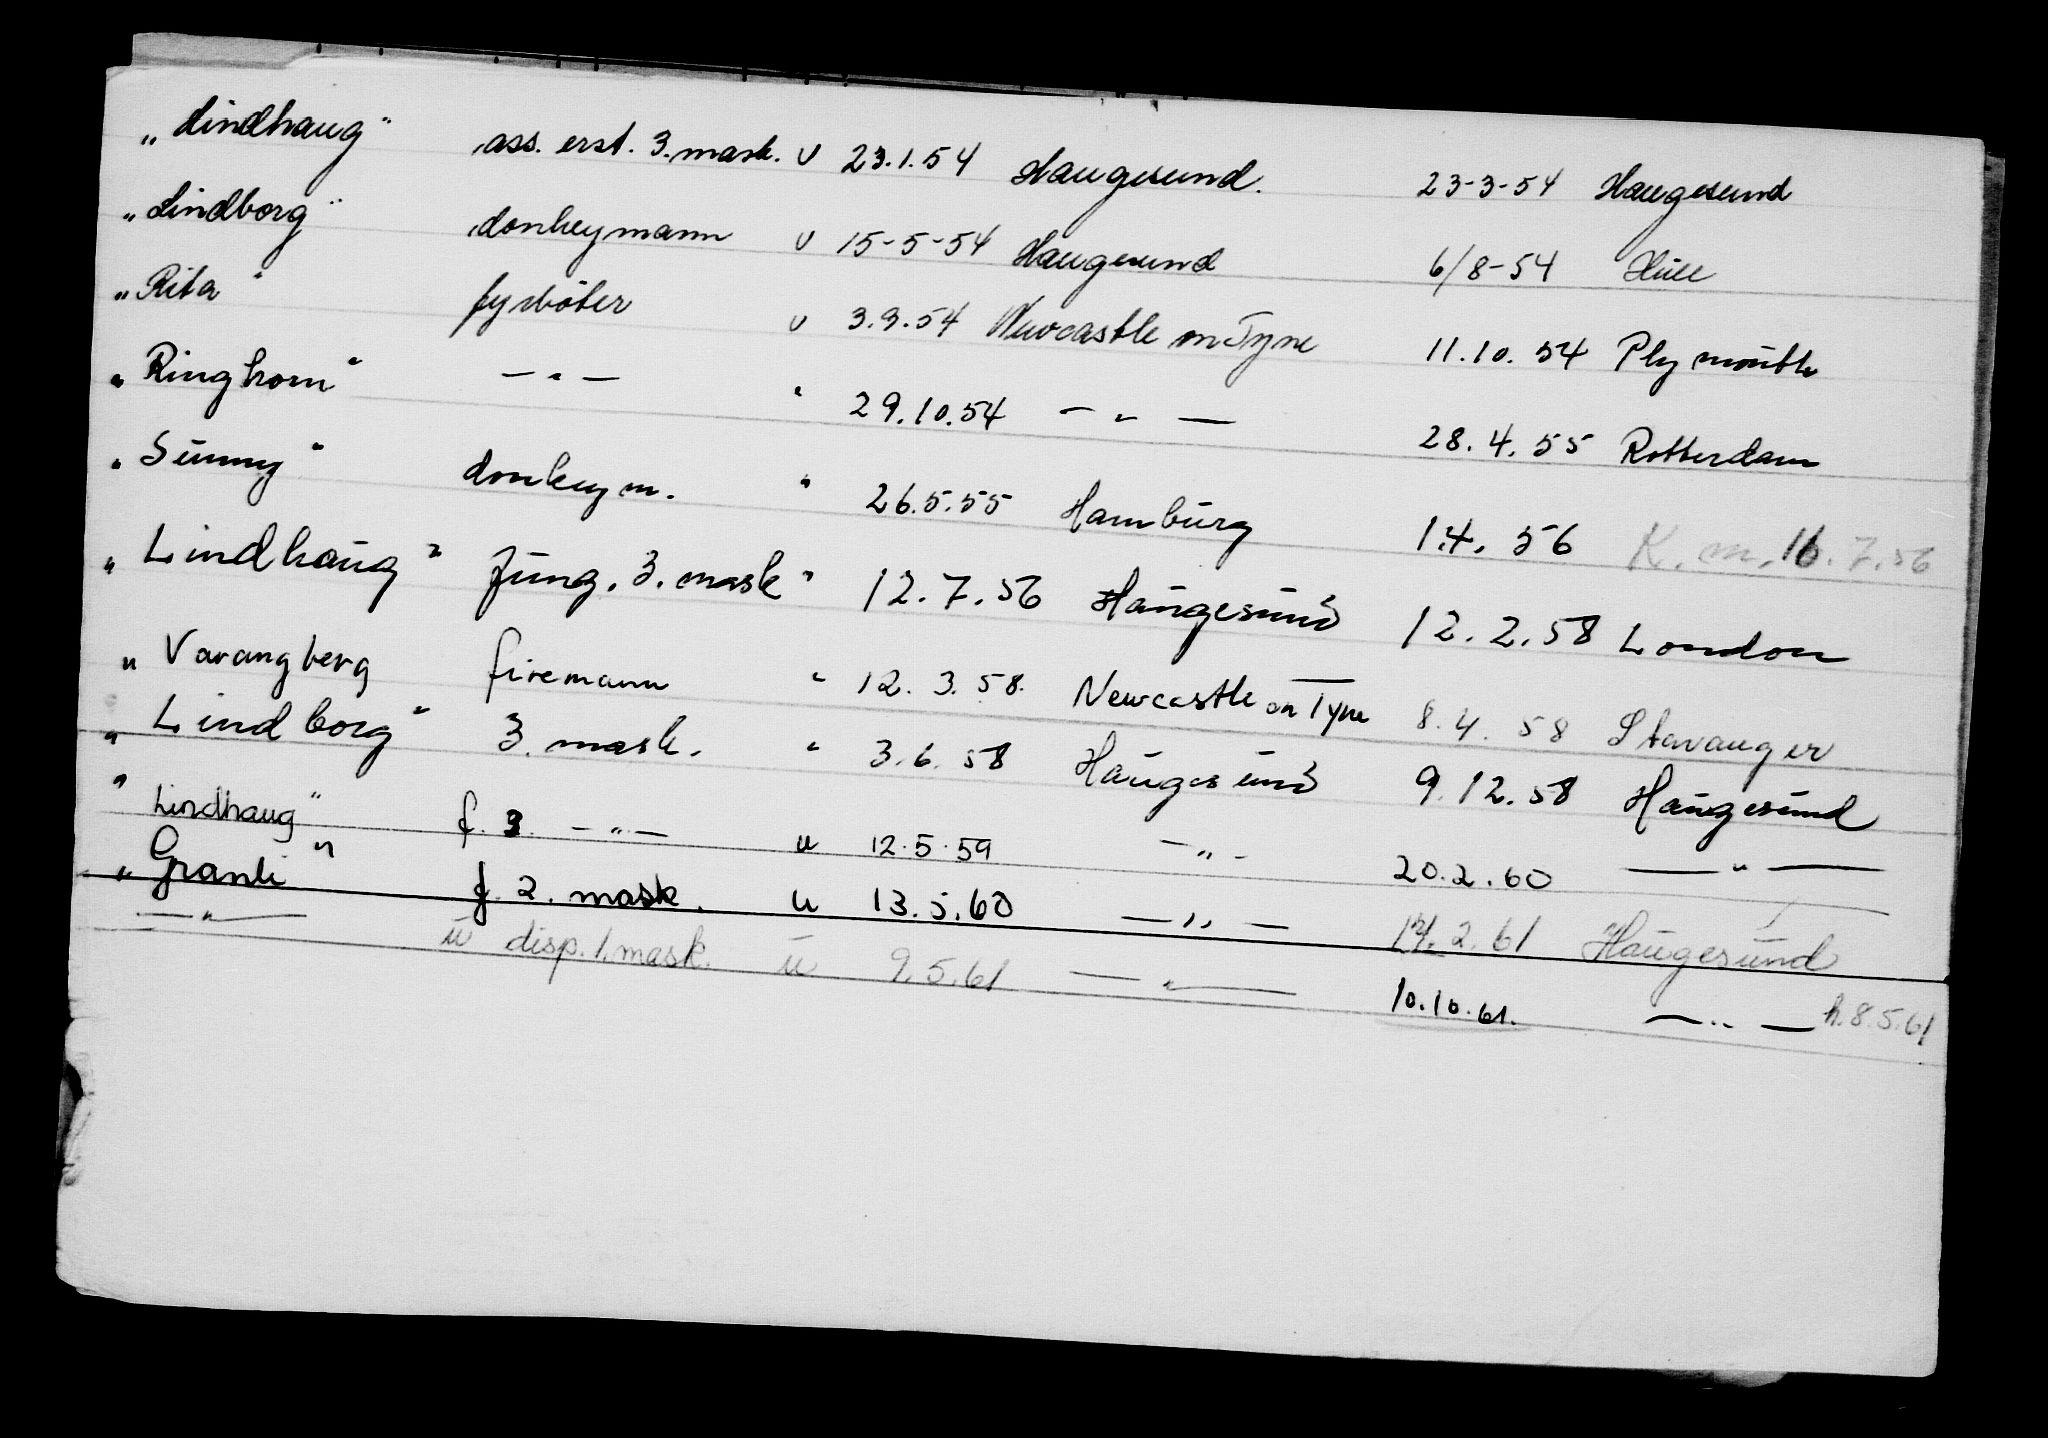 „Lindhaug" ass. erst. 3. mask. u 23.1.54 Haugesund. 23-3-54 Haugesund
„Lindborg" donkeymann u 15-5-54 Haugesund 6/8-54 Hull
„Rita" fyrbøter u 3.9.54 Newcastle on Tyne 11.10.54 Plymouth
„Ringhorn" — " — " 29.10.54 — " — 28.4.55 Rotterdam
„Sunny" donkeym. " 26.5.55 Hamburg 1.4.56 K.m. 16.7.56
„Lindhaug" fung. 3. mask " 12.7.56 Haugesund 12.2.58 London
„Varangberg firemann " 12.3.58. Newcastle on Tyne 8.4.58 Stavanger
„Lindborg" 3. mask. " 3.6.58 Haugesund 9.12.58 Haugesund
" Lindhaug" f. 3. — " — u 12.5.59 — " — 20.2.60 — " —
„Granli" f. 2. mask. u 13.5.60 — " — 2.61 Haugesund
— " — u disp. 1. mask. u 9.5.61 — " — 10.10.61. — " — h. 8.5.61